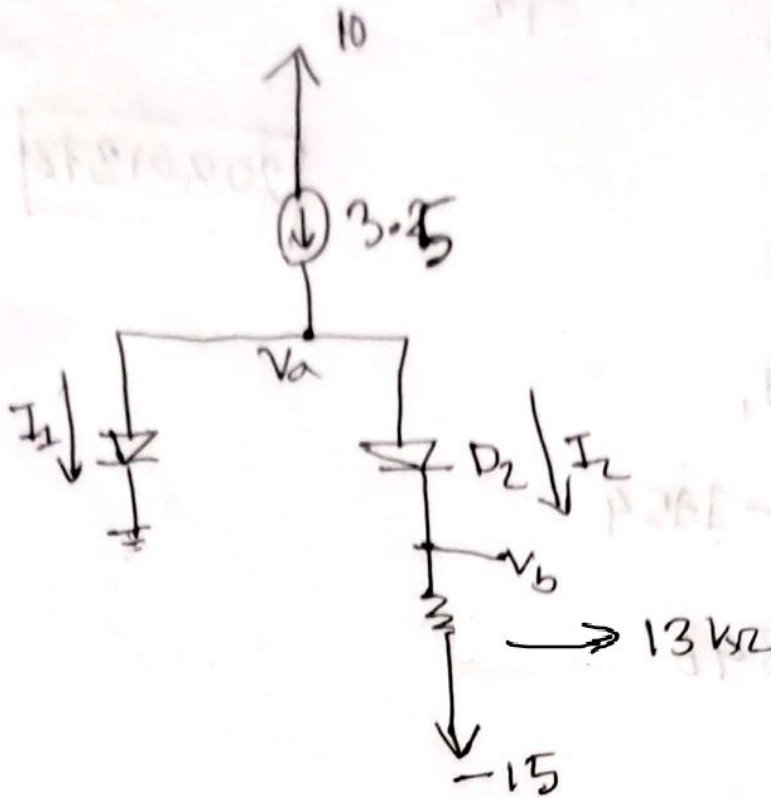 10
3.25
Va
I₁
D₂
I₂
Vb
13 kΩ
-15